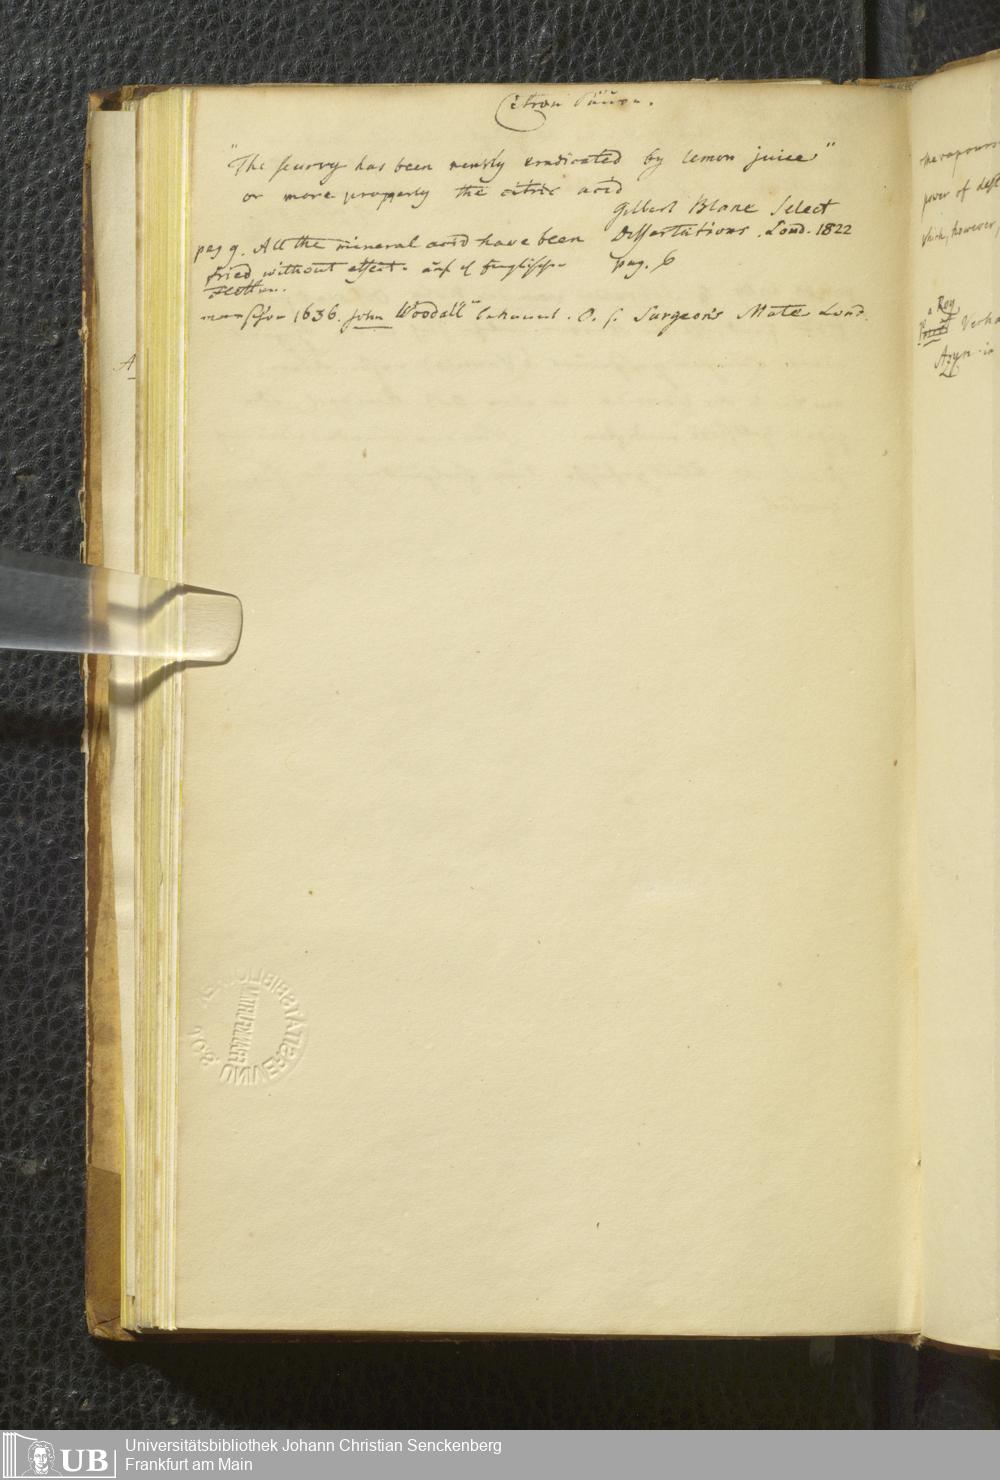 Citron Säure.
"The scurvy has been newly eradicated by lemon juice"
or more properly the citric acid
Gilbert Blane Select
Dissertations. Lond. 1822
pag. 6
pag 9. All the mineral acid have been
tried without effect. auf d englischen
Flotten.
1636. John Woodall bekannt. O. S. Surgeon's Mate Lond.
A
the vapours
power of
which, however,
a Roy
Universitätsbibliothek Johann Christian Senckenberg
Frankfurt am Main
UB